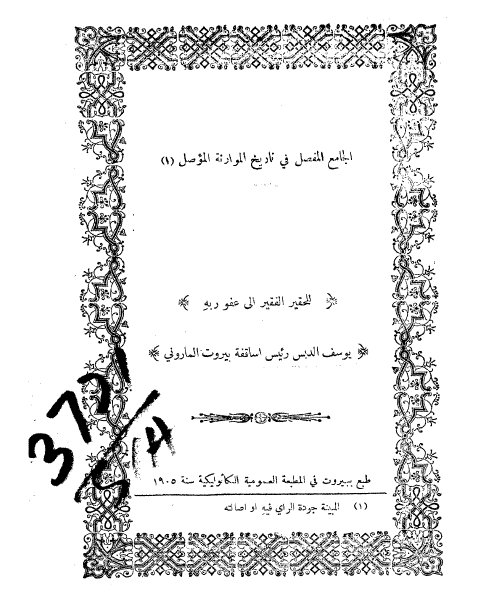 الجامع المفصل في تاريخ الموارنة المؤصل (١)
للحقير الفقير الى عفو ربهِ
يوسف الدبس رئيس اساقفة بيروت الماروني
طبع ببيروت في المطبعة العمومية الكاثوليكية سنة ١٩٠٥
(١) المبينة جودة الراي فيهِ او اصالته